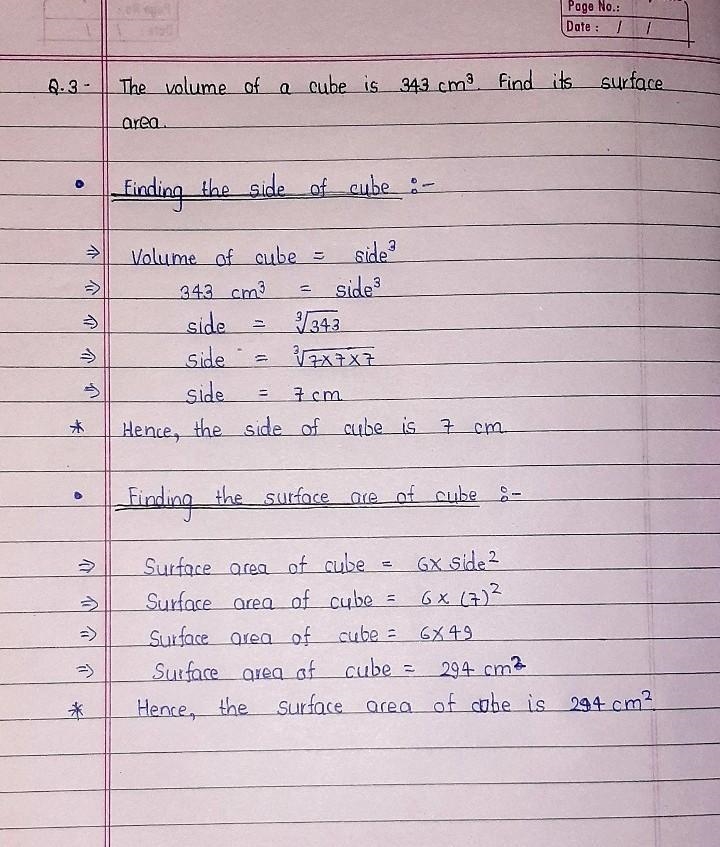 Page No.:
Date : / /
Q.3 - The volume of a cube is 343 cm³. Find its surface
area.
• Finding the side of cube :-
⇒ Volume of cube = side³
⇒ 343 cm³ = side³
⇒ side = ³√343
⇒ side = ³√7×7×7
⇒ side = 7 cm
* Hence, the side of cube is 7 cm
• Finding the surface are of cube :-
⇒ Surface area of cube = 6× side²
⇒ Surface area of cube = 6 × (7)²
⇒ Surface area of cube = 6×49
⇒ Surface area of cube = 294 cm²
* Hence, the surface area of cube is 294 cm²